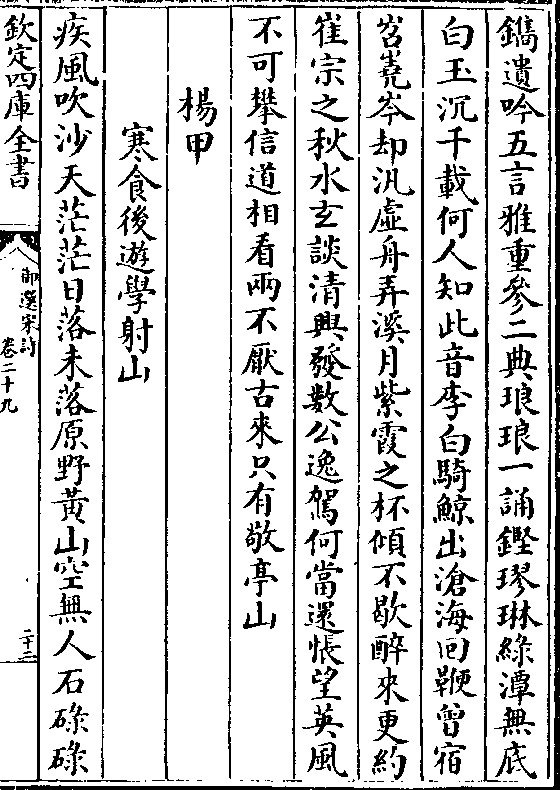 鐫遺吟五言雅重參二典琅琅一誦鏗璆琳綠潭無底
白玉沉千載何人知此音李白騎鯨出滄海回鞭曾宿
岧嶤岑却汎虛舟弄溪月紫霞之杯傾不歇醉來更約
崔宗之秋水玄談清興發數公逸駕何當還悵望英風
不可攀信道相看兩不厭古來只有敬亭山
楊甲
寒食後遊學射山
疾風吹沙天茫茫日落未落原野黃山空無人石磙磙
欽定四庫全書
御選宋詩
卷二十九
二十二